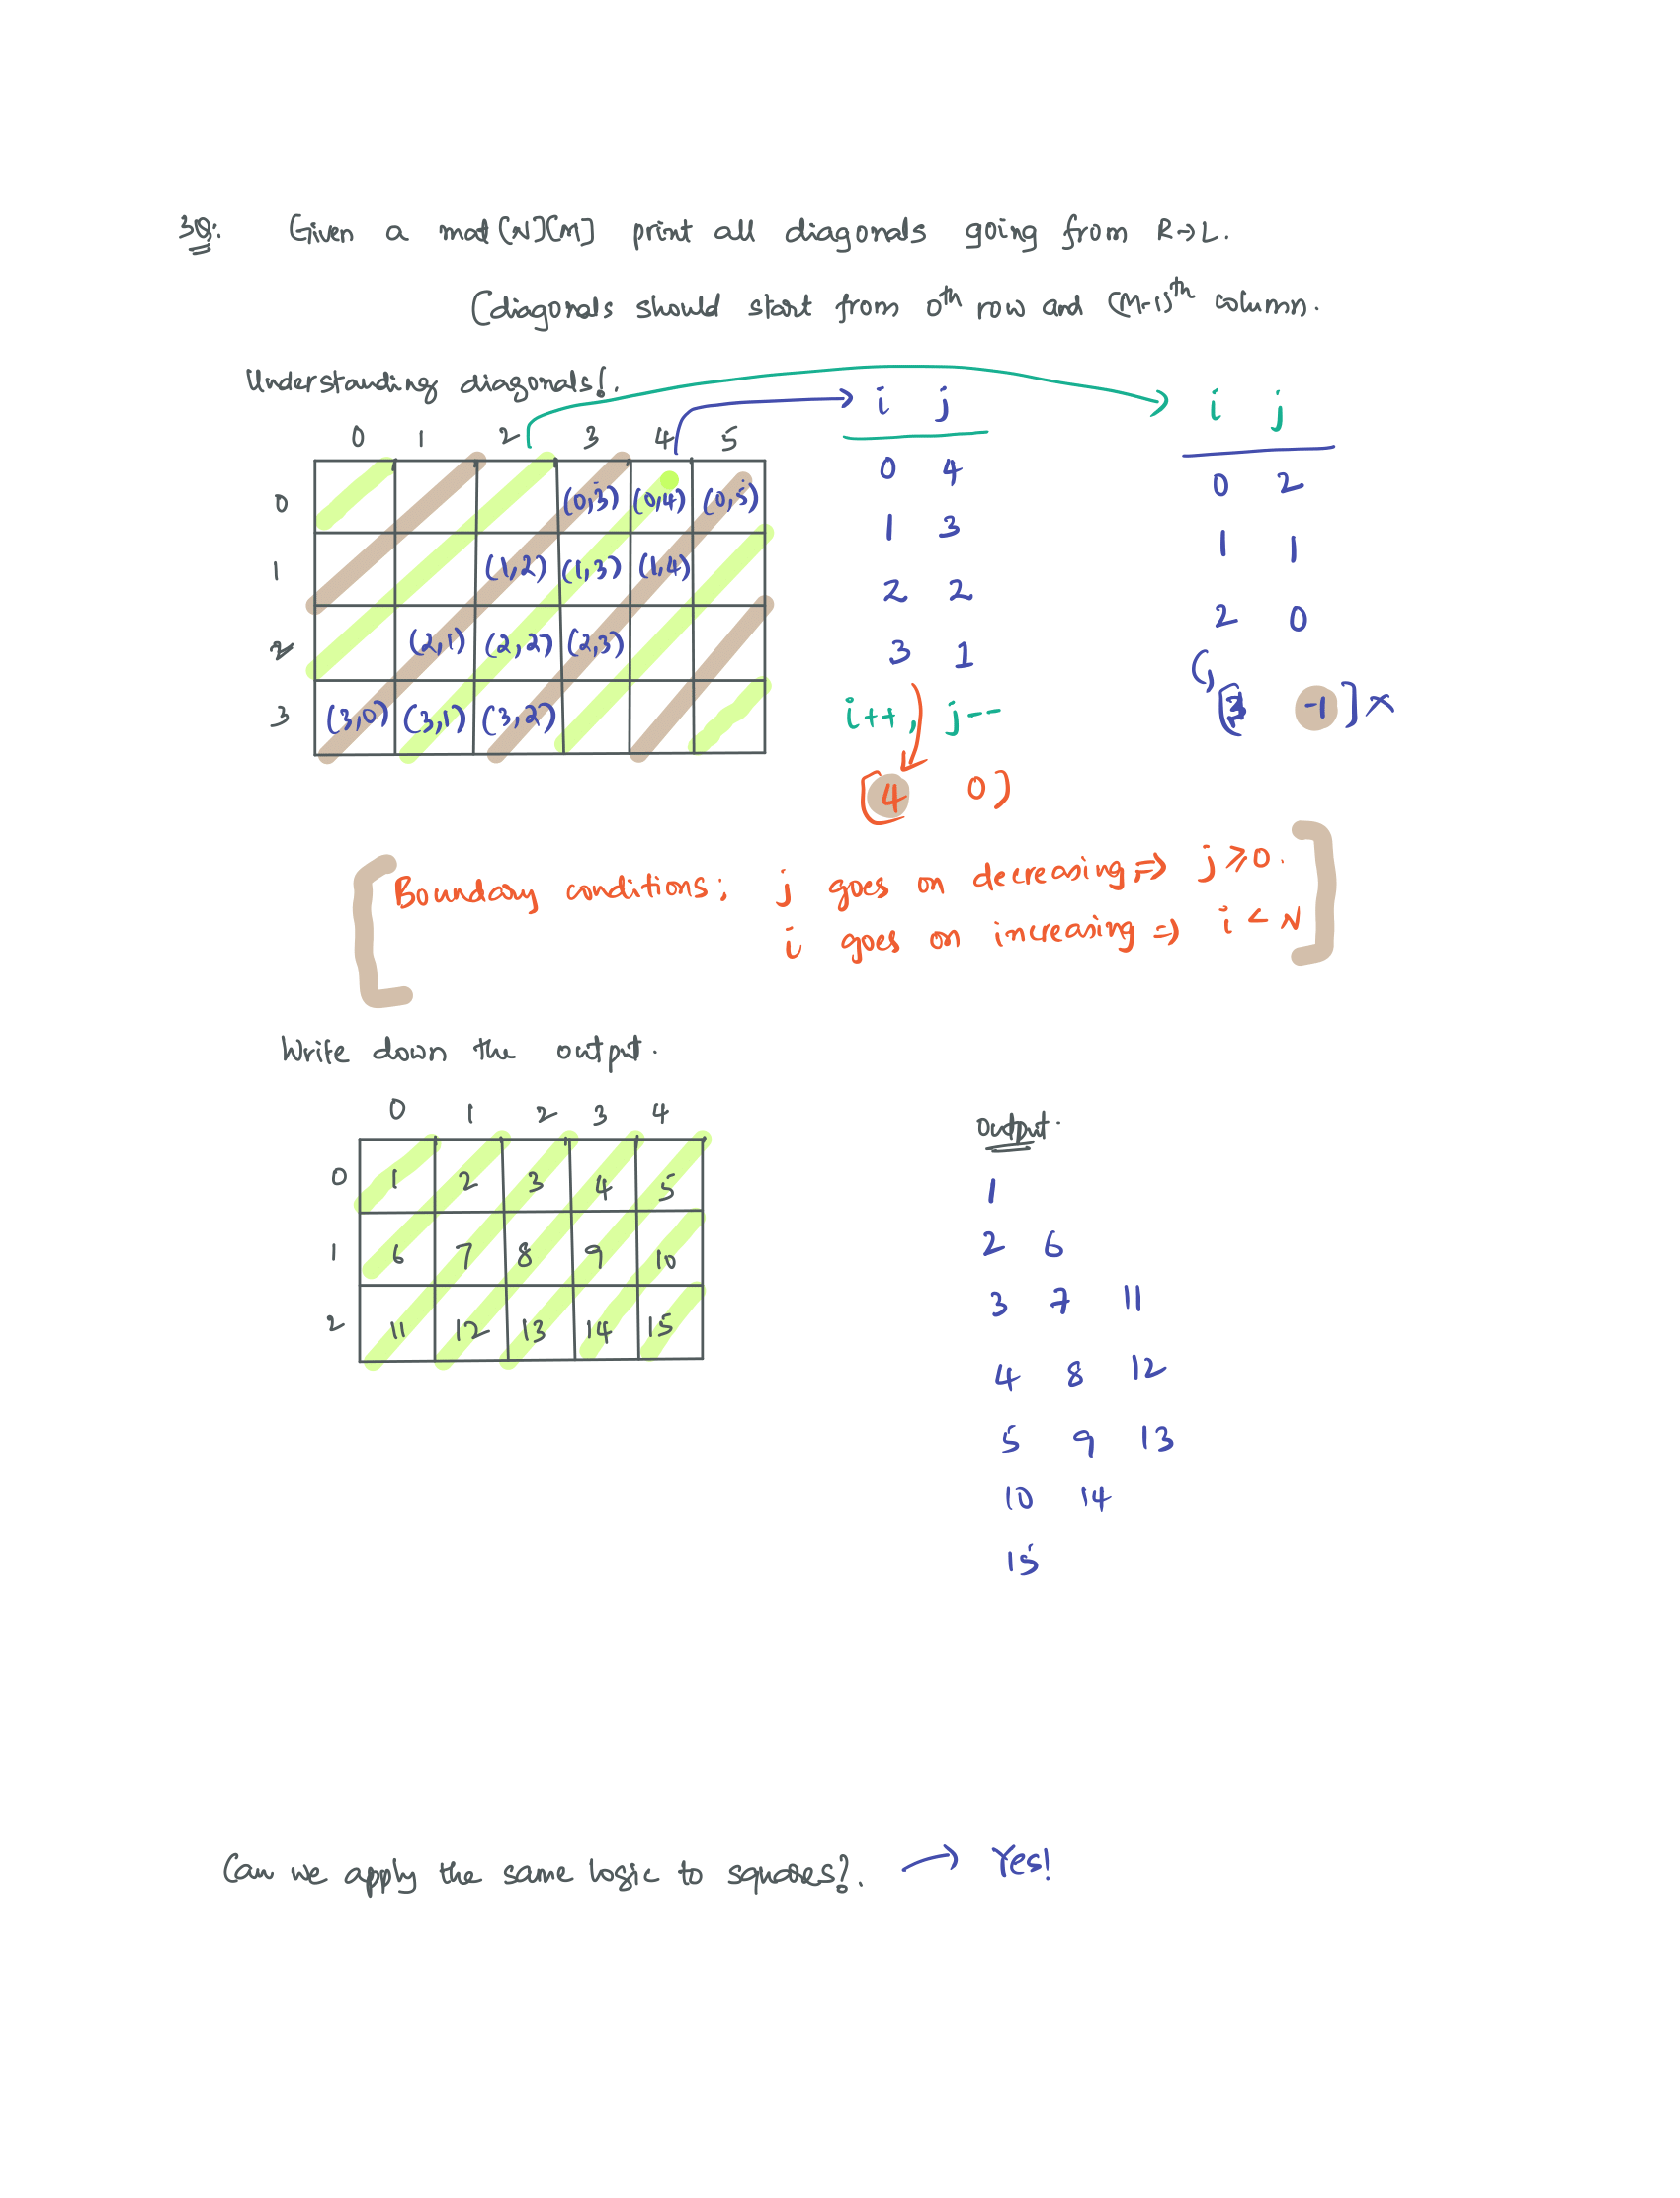 3Q: Given a mat[N][M] print all diagonals going from R→L.
(diagonals should start from 0th row and (M-1)th column.
Understanding diagonals!.
0 1 2 3 4 5
i j
i j
0 (0,3) (0,4) (0,5)
1 (1,2) (1,3) (1,4)
2 (2,1) (2,2) (2,3)
3 (3,0) (3,1) (3,2)
0 4
1 3
2 2
3 1
i++, j--
[4 0]
0 2
1 1
2 0
[3 -1] x
Boundary conditions; j goes on decreasing ⇒ j ≥ 0.
i goes on increasing ⇒ i < N
Write down the output.
0 1 2 3 4
0 1 2 3 4 5
1 6 7 8 9 10
2 11 12 13 14 15
output.
1
2 6
3 7 11
4 8 12
5 9 13
10 14
15
Can we apply the same logic to squares?. → Yes!